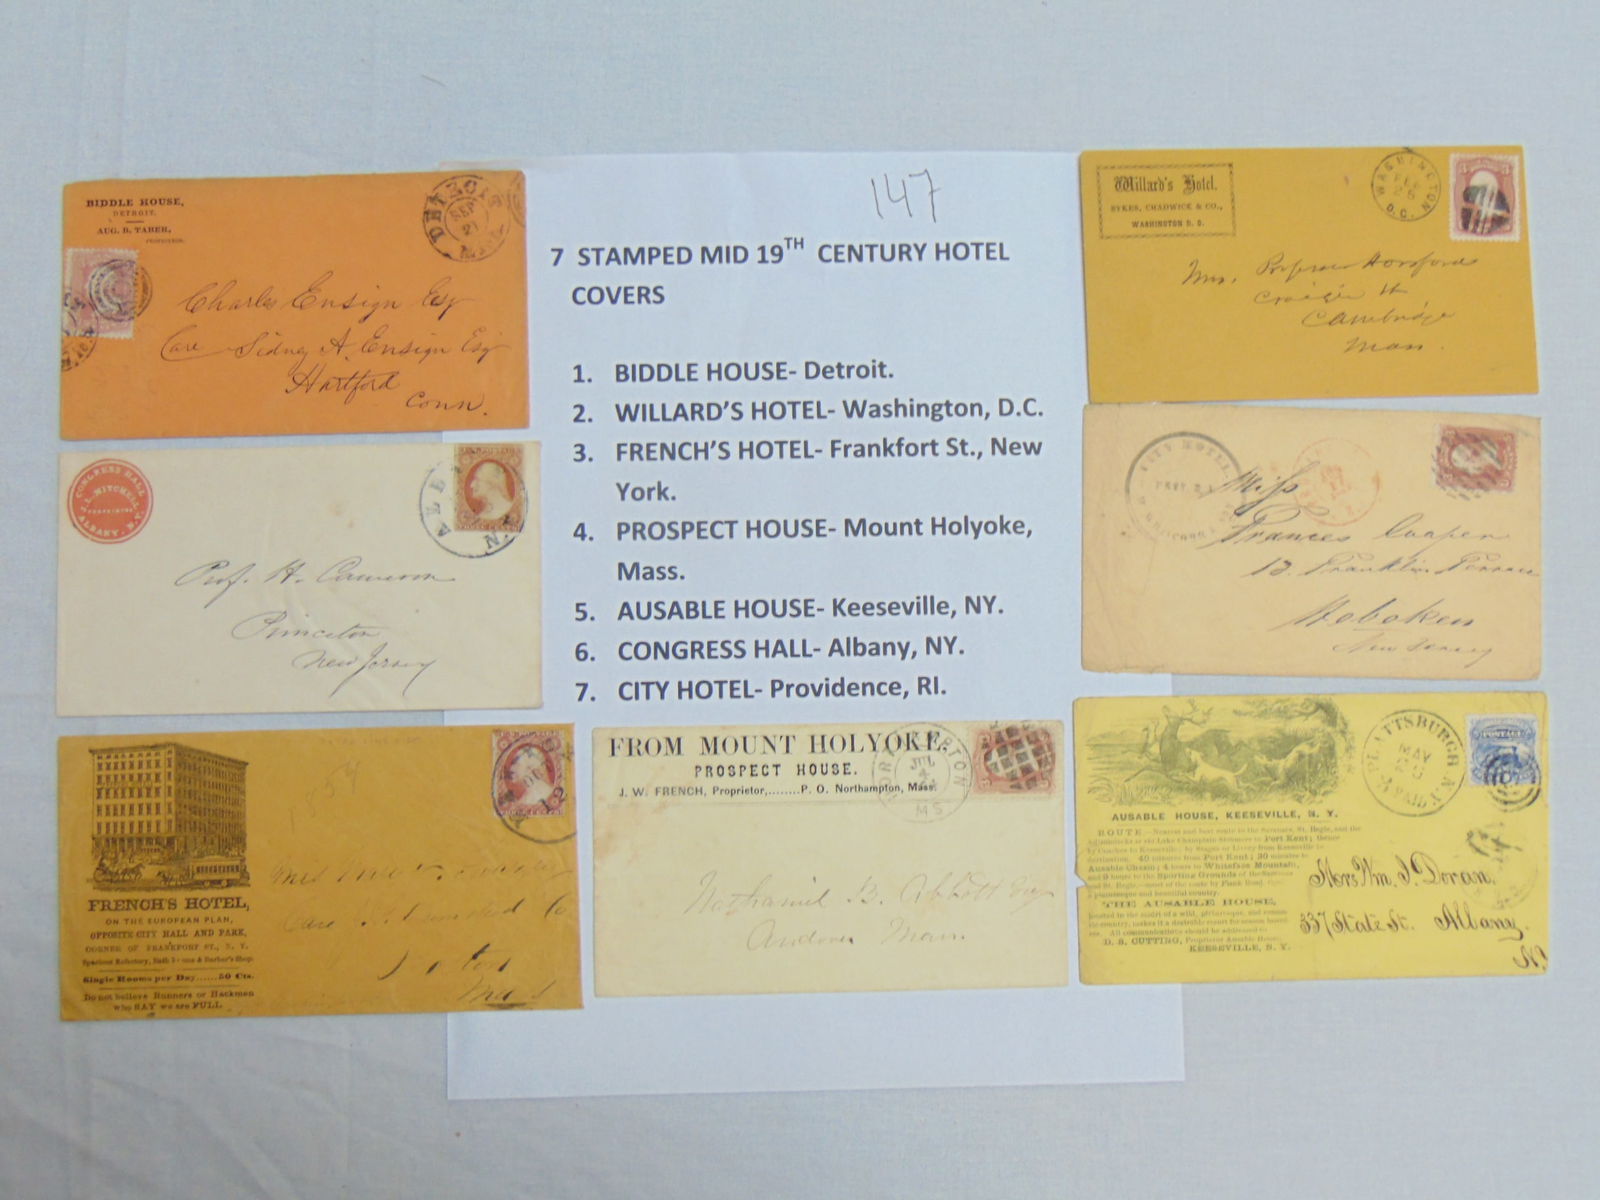 147
7 STAMPED MID 19TH CENTURY HOTEL
COVERS
1. BIDDLE HOUSE- Detroit.
2. WILLARD'S HOTEL- Washington, D.C.
3. FRENCH'S HOTEL- Frankfort St., New
York.
4. PROSPECT HOUSE- Mount Holyoke,
Mass.
5. AUSABLE HOUSE- Keeseville, NY.
6. CONGRESS HALL- Albany, NY.
7. CITY HOTEL- Providence, RI.
BIDDLE HOUSE,
DETROIT.
AUG. B. TABER,
PROPRIETOR.
DETROIT
SEP
21
MICH.
Charles Ensign Esq
Care Sidney A. Ensign Esq
Hartford
Conn.
CONGRESS HALL
J. L. MITCHELL
PROPRIETOR
ALBANY, N.Y.
ALBANY
N.Y.
THREE CENTS
Prof. H. Cameron
Princeton
New Jersey
1854
FRENCH'S HOTEL,
ON THE EUROPEAN PLAN,
OPPOSITE CITY HALL AND PARK,
CORNER OF FRANKFORT ST., N. Y.
Spacious Refectory, Bath Rooms & Barber's Shop.
Single Rooms per Day......50 Cts.
Do not believe Runners or Hackmen
who SAY we are FULL
12
Care
Co
FROM MOUNT HOLYOKE,
PROSPECT HOUSE.
J. W. FRENCH, Proprietor,........P. O. Northampton, Mass.
NORTHAMPTON
JUL
4
MS
Nathaniel B. Abbott Esq
Andover Mass.
Willard's Hotel.
SYKES, CHADWICK & CO.,
WASHINGTON D. C.
WASHINGTON
D.C.
Mrs. Professor Horsford
Craigie St
Cambridge
Mass.
CITY HOTEL
Miss
Frances Cooper
13 Franklin Terrace
Hoboken
New Jersey
PLATTSBURGH N.Y.
MAY
PAID
POSTAGE
AUSABLE HOUSE, KEESEVILLE, N. Y.
ROUTE.—Nearest and best route to the Saranacs, St. Regis, and the
Adirondacks is via Lake Champlain Steamers to Port Kent; thence
by Coaches to Keeseville; by Stages or Livery from Keeseville to
destination. 40 minutes from Port Kent; 30 minutes to
Ausable Chasm; 4 hours to Whiteface Mountain,
and 9 hours to the Sporting Grounds of the Saranacs
and St. Regis—most of the route by Plank Road, through
a picturesque and beautiful country.
THE AUSABLE HOUSE,
located in the midst of a wild, picturesque, and romantic
the country, makes it a desirable resort for season
All communications should be addressed to
D. S. CUTTING, Proprietor Ausable House,
KEESEVILLE, N. Y.
Hors Wm. I. Doran,
337 State St. Albany.
N.